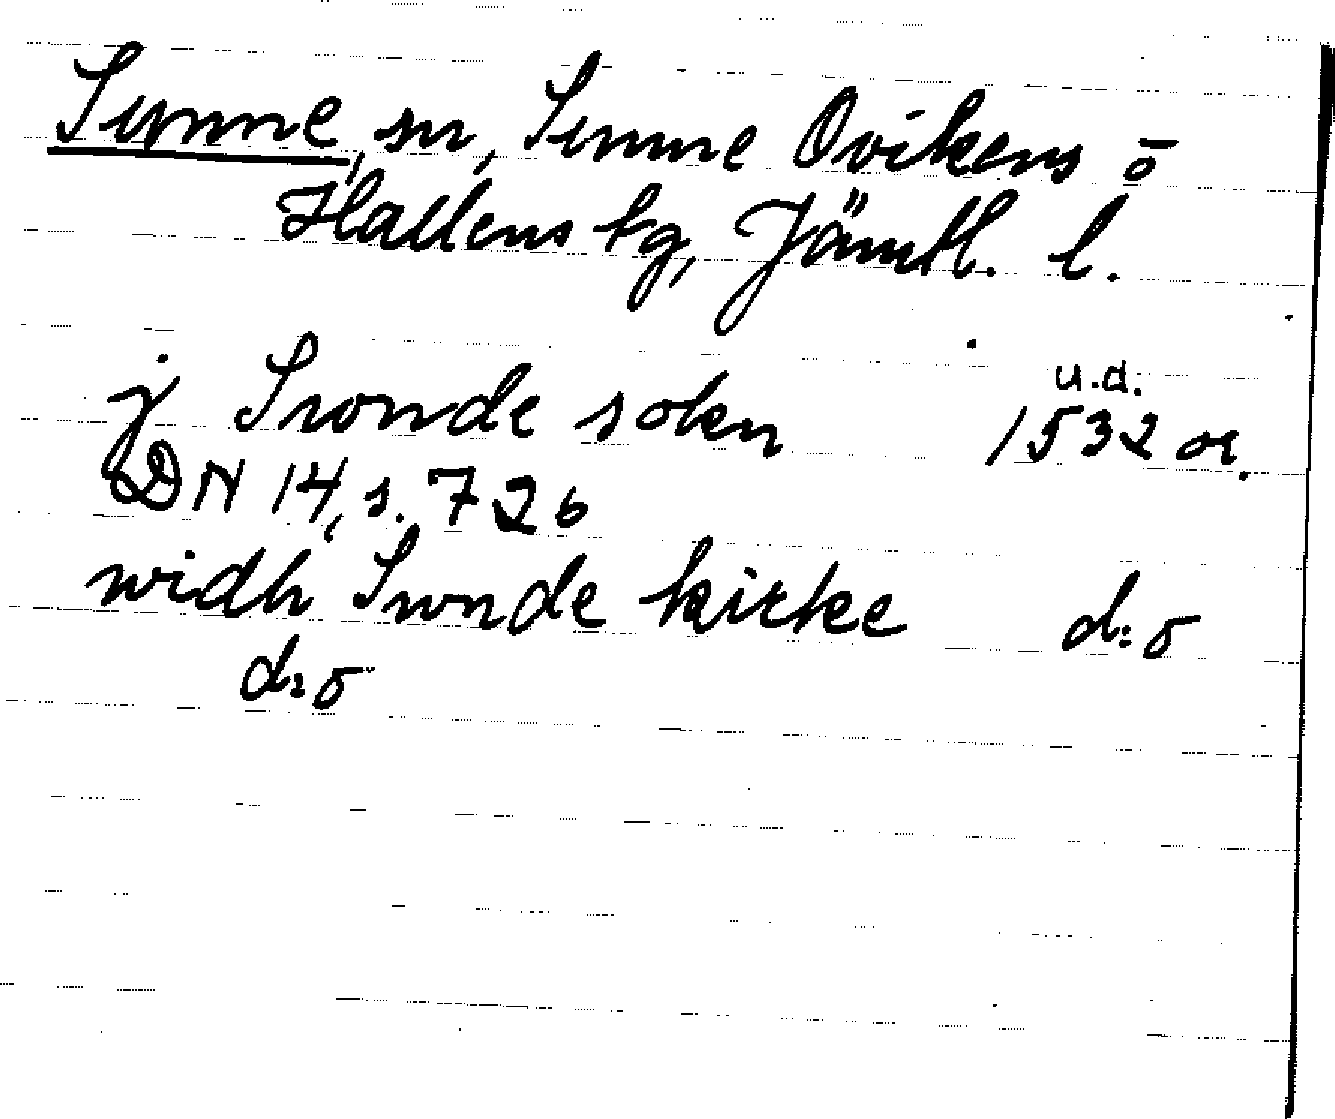 Sunne, sn, Sunne Ovikens o
Hallens tg, Jämtl. l.
u.d.
j Swnde sokn 1532 or.
DN 14, s. 726
widh Swnde kirke d:o
d:o